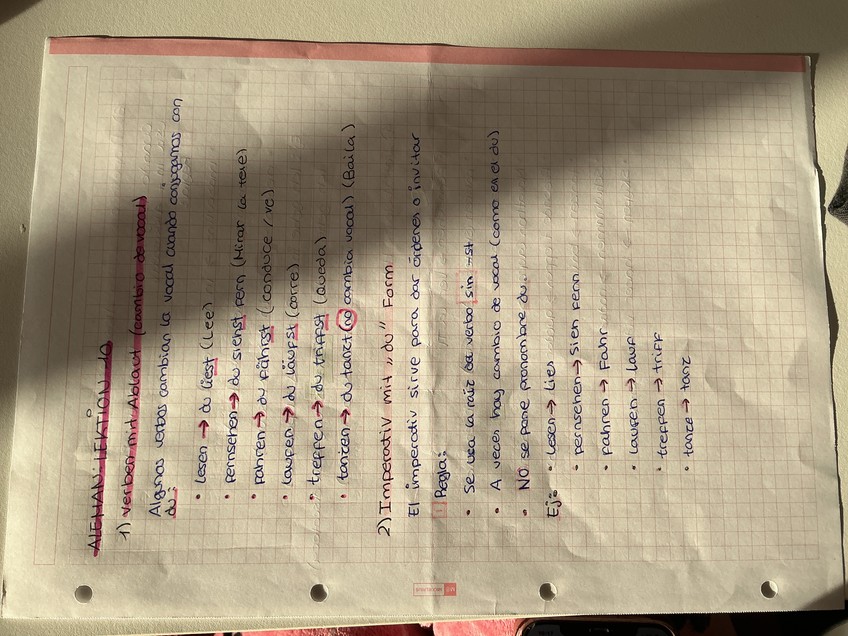 ALEMAN: LEKTION 10
1) Verben mit Ablaut (cambio de vocal)
Algunos verbos cambian la vocal cuando conjugamos con
du:
• lesen → du liest (Lee)
• fernsehen → du siehst fern (Mirar la tele)
• fahren → du fährst (conduce / ve)
• laufen → du läufst (corre)
• treffen → du triffst (Queda)
• tanzen → du tanzt (no cambia vocal) (Baila)
2) Imperativ mit „du" Form
El imperativ sirve para dar órdenes o invitar
Regla:
• Se usa la raíz del verbo sin -st
• A veces hay cambio de vocal (como en el du)
• NO se pone pronombre du.
Ej:
• lesen → Lies
• fernsehen → Sieh fern
• fahren → Fahr
• laufen → lauf
• treffen → triff
• tanze → tanz